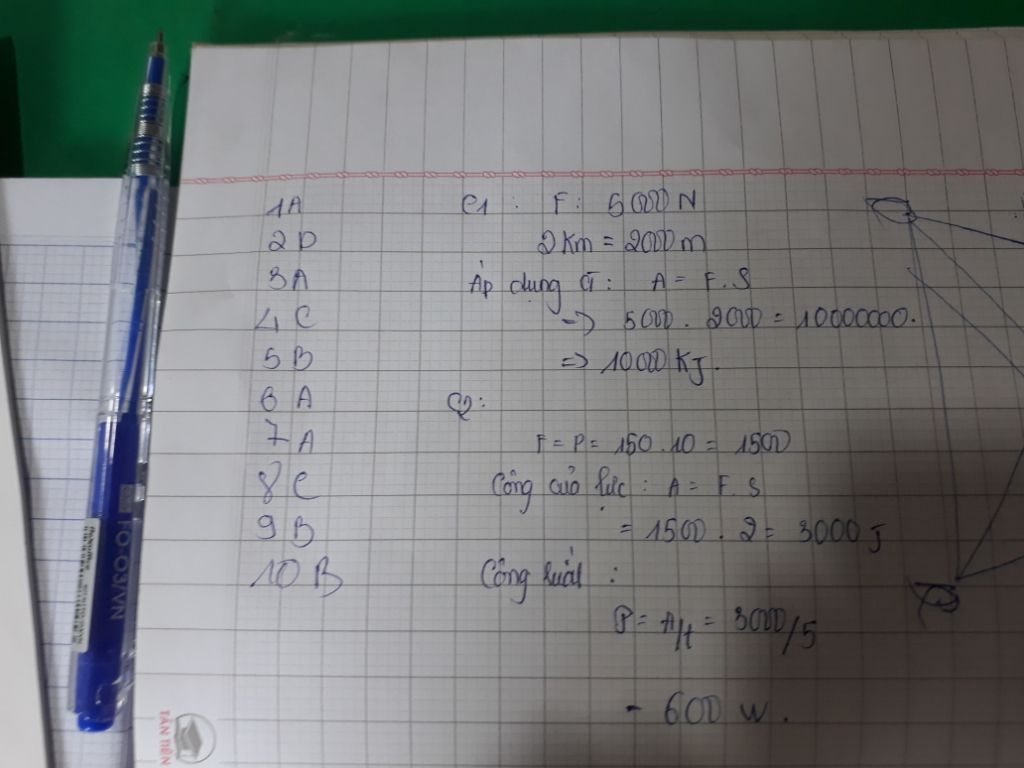 1A
2D
3A
4C
5B
6 A
7 A
8 C
9 B
10 B
C1 : F: 5000 N
2 Km = 2000 m
Áp dụng CT: A = F.S
-> 5000 . 2000 = 10000000.
=> 10000 KJ.
C2:
F = P = 150 . 10 = 1500
Công của lực : A = F.S
= 1500 . 2 = 3000 J
Công suất :
P = A/t = 3000/5
- 600 W.
FO-03/VN
TÂN TIẾN